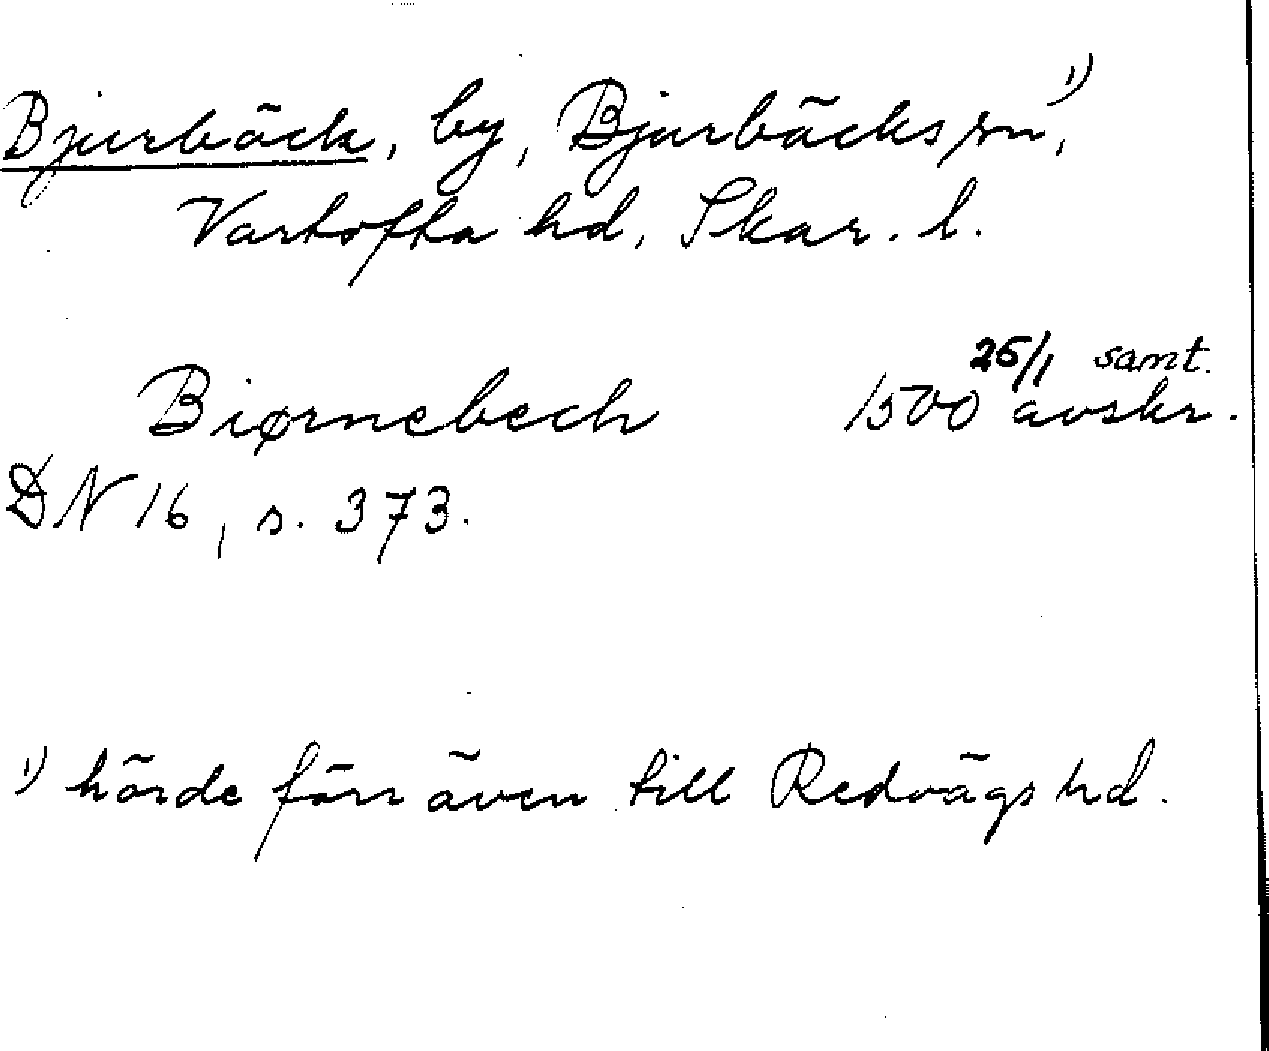 Bjurbäck, by, Bjurbäcks sn¹⁾,
Vartofta hd, Skar. l.
Biørnebech 1500 25/1 samt. avskr.
DN 16, s. 373.
¹⁾ hörde förr även till Redvägs hd.